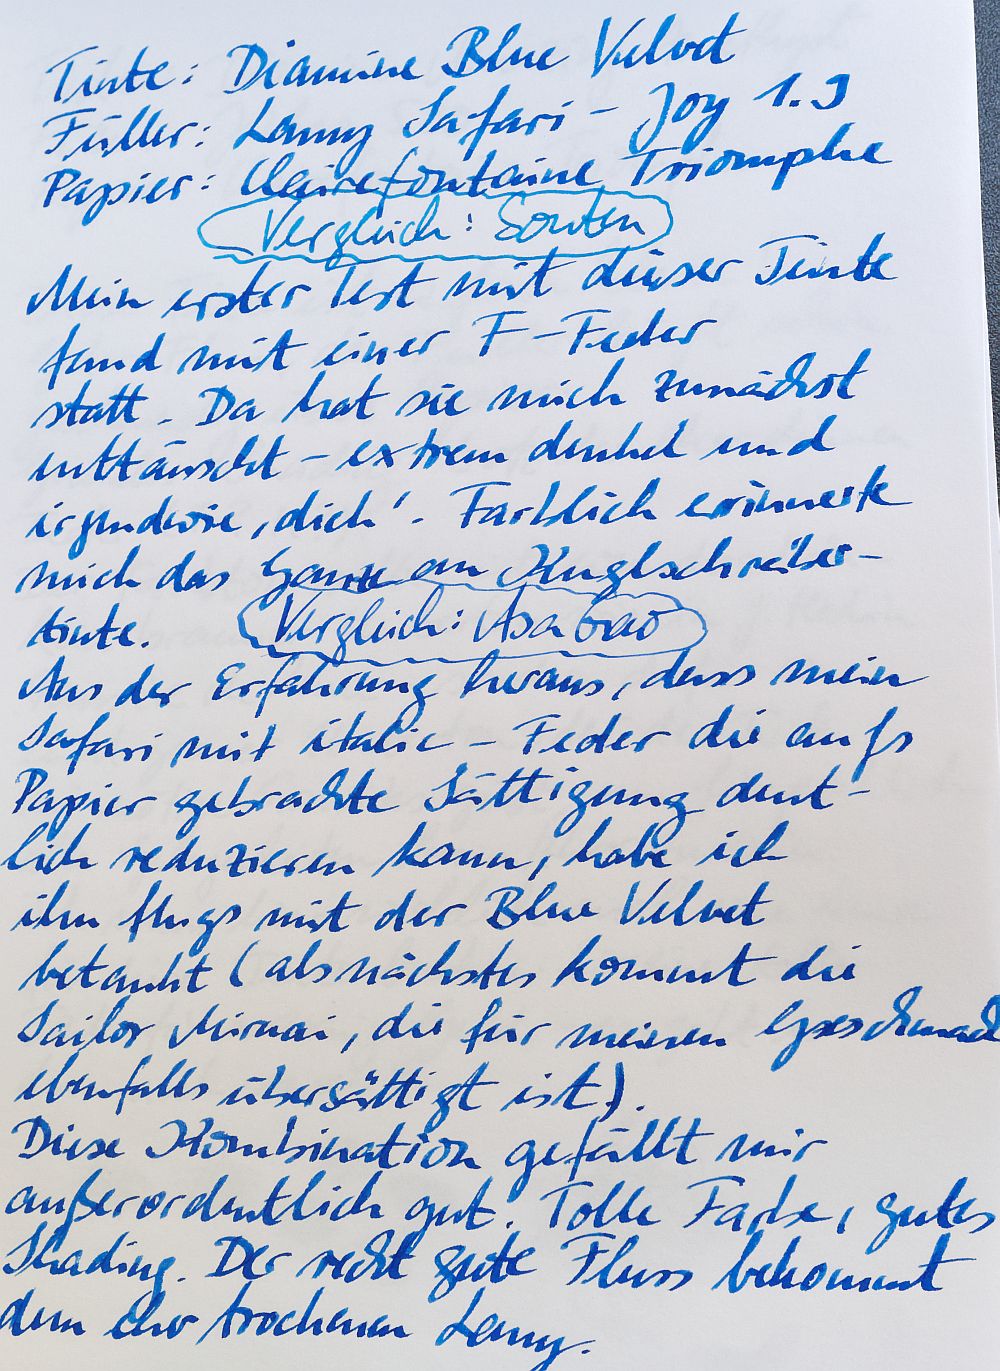 Tinte: Diamine Blue Velvet
Füller: Lamy Safari - Joy 1.9
Papier: Clairefontaine Triomphe
Vergleich: Souten
Mein erster Test mit dieser Tinte
fand mit einer F-Feder
statt. Da hat sie mich zunächst
enttäuscht - extrem dunkel und
irgendwie ,dick'. Farblich erinnerte
mich das Ganze an Kugelschreiber-
tinte.
Vergleich: Asa Gao
Aus der Erfahrung heraus, dass mein
Safari mit italic-Feder die aufs
Papier gebrachte Sättigung deut-
lich reduzieren kann, habe ich
ihn flugs mit der Blue Velvet
betankt (als nächstes kommt die
Sailor Miruai, die für meinen Geschmack
ebenfalls übersättigt ist).
Diese Kombination gefällt mir
außerordentlich gut. Tolle Farbe, gutes
Shading. Der recht gute Fluss bekommt
dem eher trockenen Lamy.